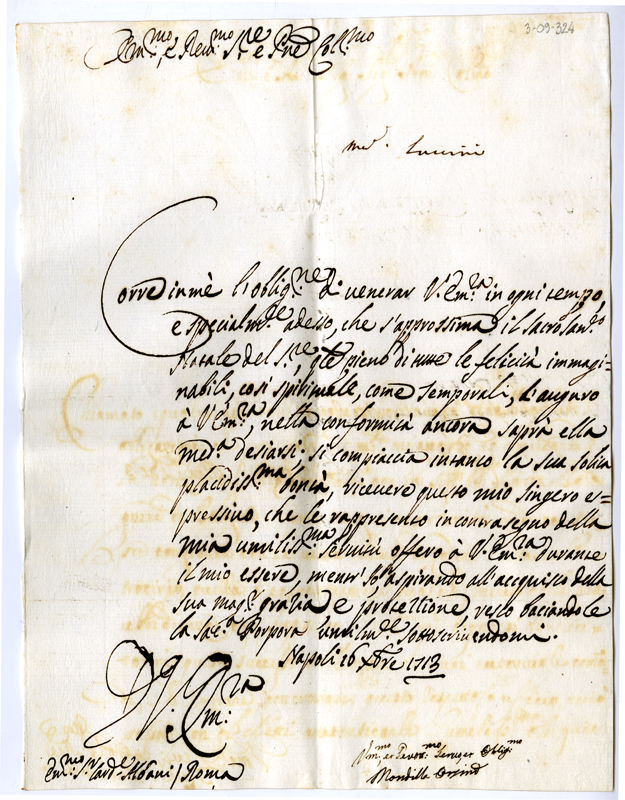 3-09-324
Em.mo, e Rev.mo S.re e P.ne Coll.mo
Corre in mè l'oblig.ne di venerar V.Em.za in ogni tempo,
e specialm.te adesso, che s'approssima il sacrosan.to
Natale del S.re, q̃te pieno di tutte le felicità immagi=
nabili, così spirituale, come temporali, l'auguro
à V.Em.za, nella conformità ancora saprà ella
med.a desiarsi. si compiaccia intanto la sua solita
placidiss.ma bontà, ricevere questo mio singero es=
pressivo, che le rappresento in contrasegno della
mia umiliss.ma servitù offero à V.Em.za durante
il mio essere, mentr'io aspirando all'acquisto della
sua mag.r grazia e protettione, resto baciandole
la sac.a Porpora umilm.te sottoscrivendomi.
Napoli 16 Xbre 1713
D.V. Em.za
Em.mo S.r Card.e Albani / Roma
Um.mo et Devot.mo Servitor Oblig.mo
Mondilla Orsino